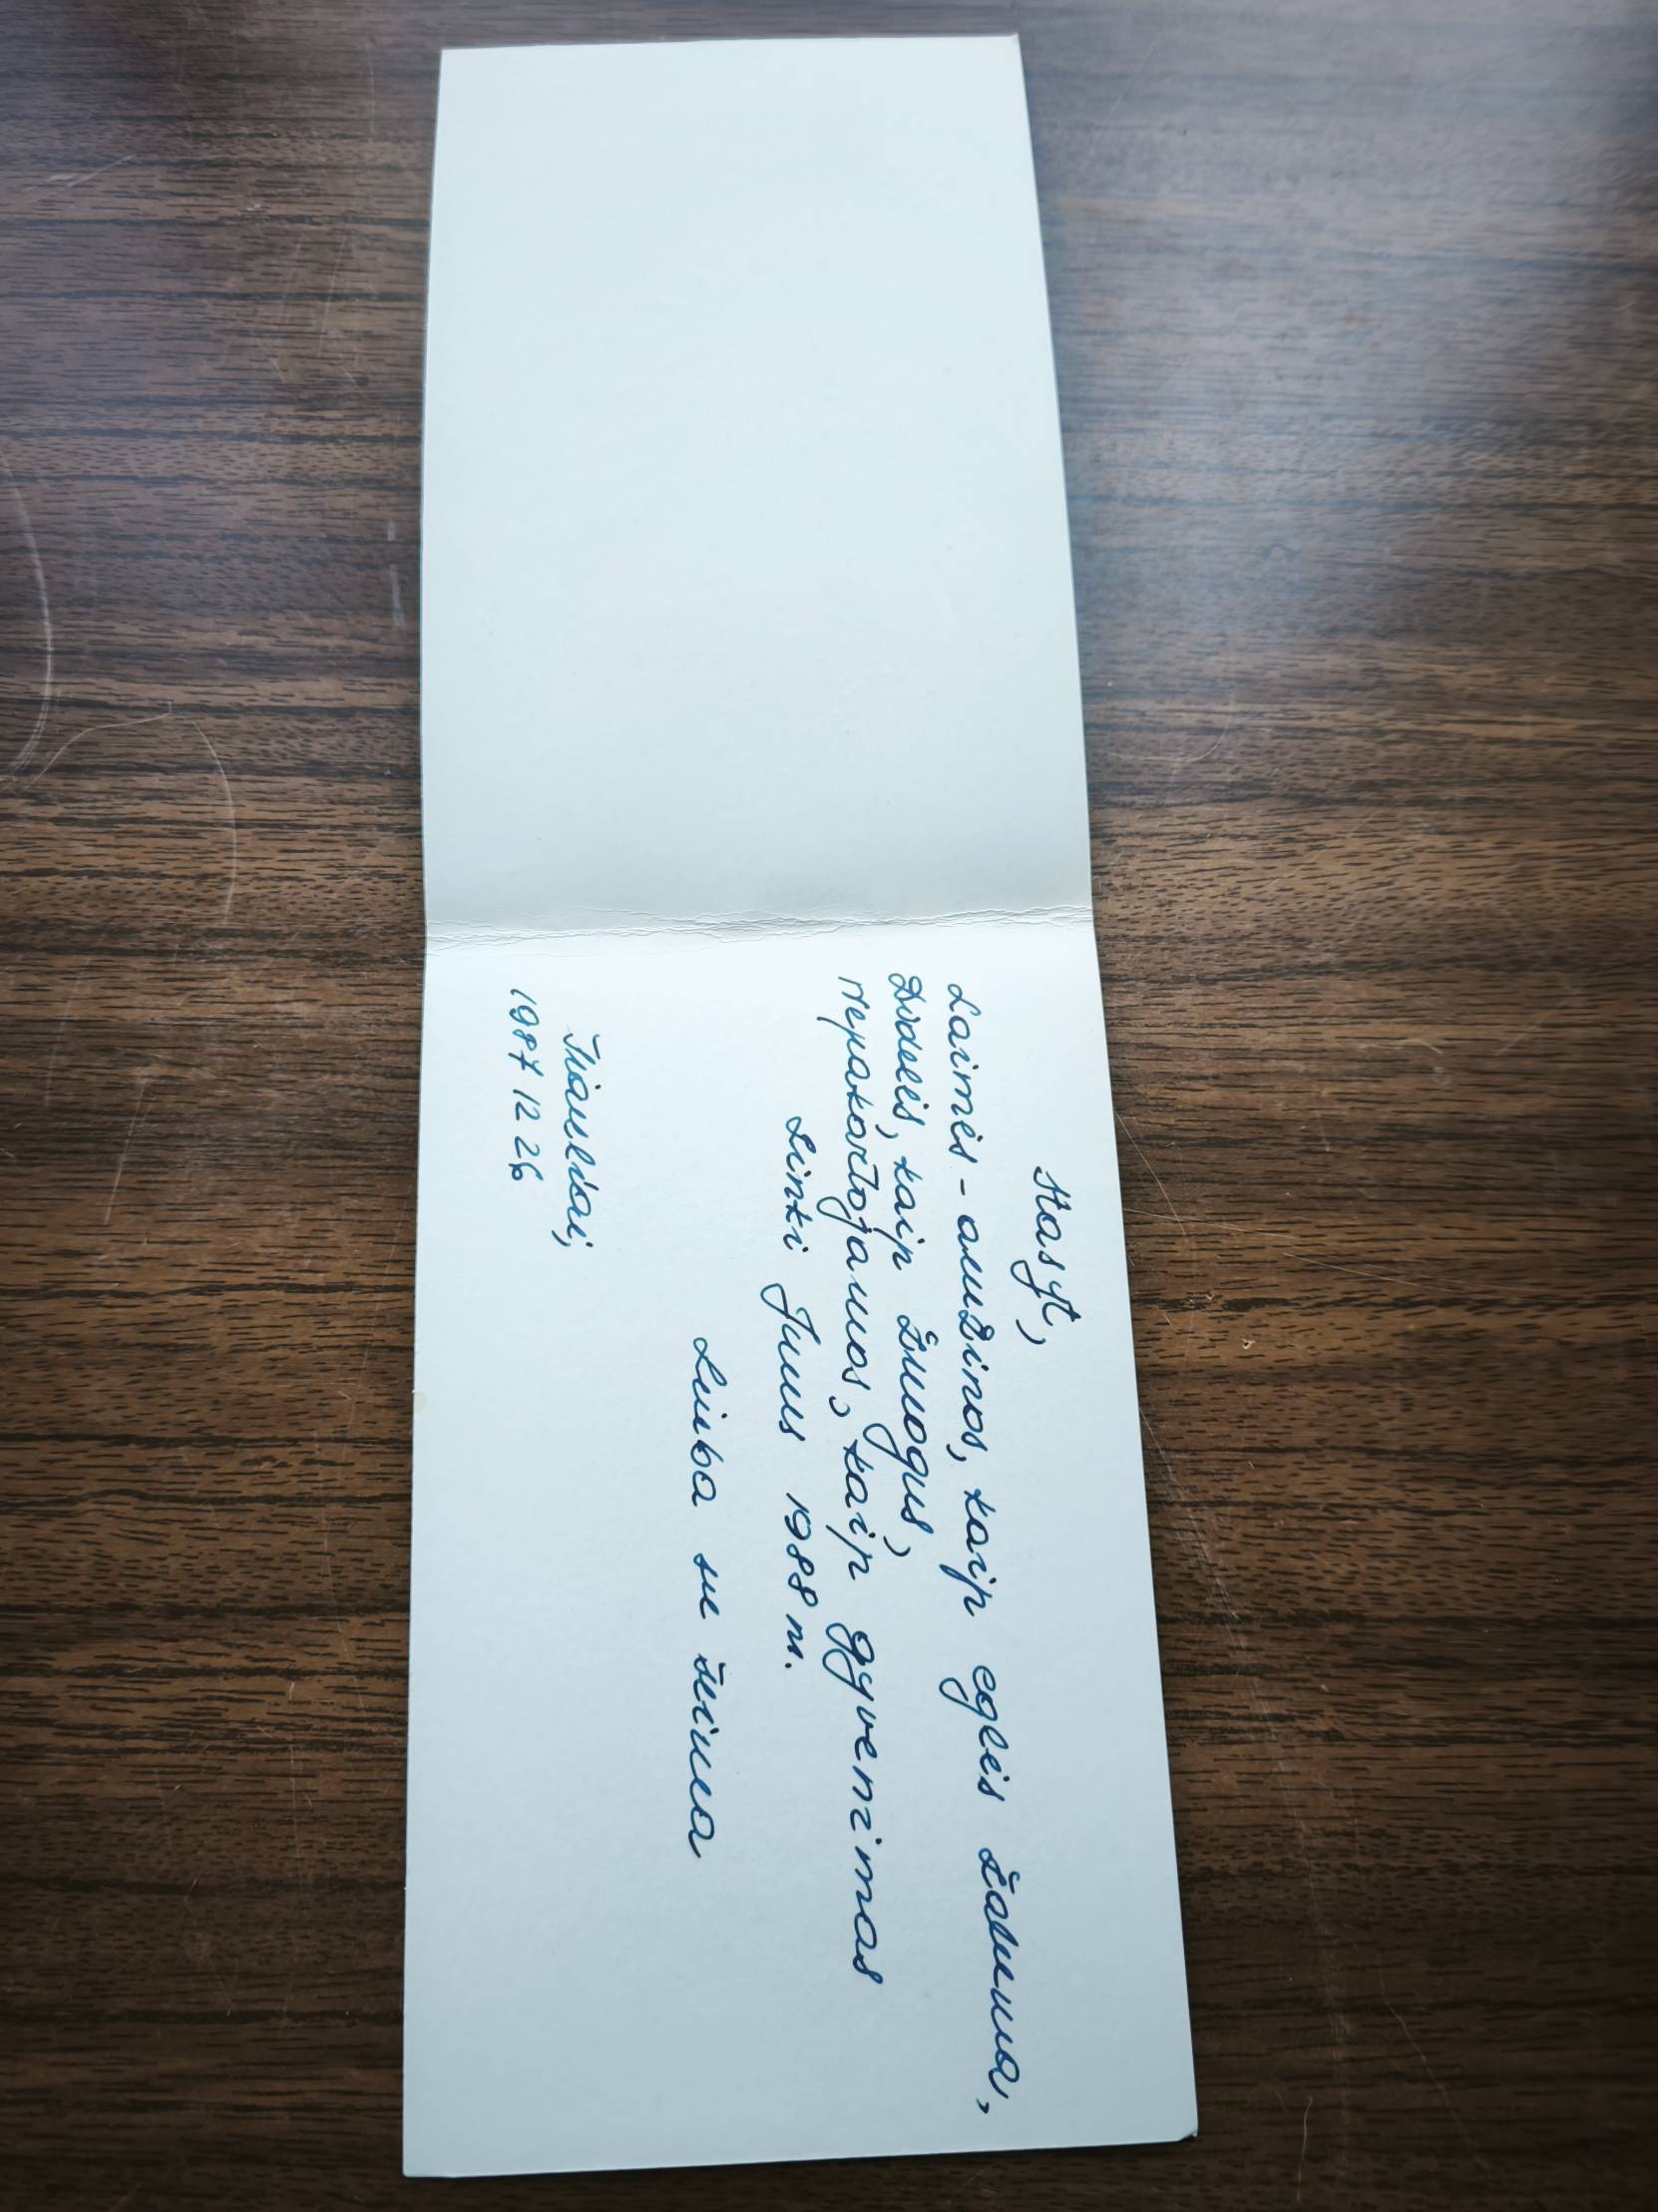 Stasyt,
Laimės - amžinos, kaip eglės žaluma,
Didelės, kaip žmogus,
Nepakartojamos, kaip gyvenimas
Linki Jums 1988 m.
Liuba su šeima
Šiauliai,
1987 12 26